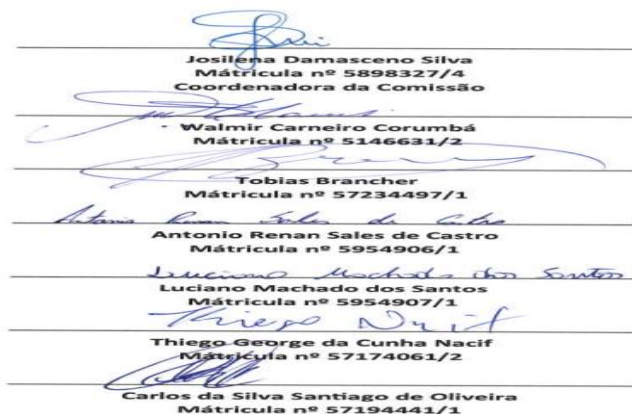 Josilena Damasceno Silva
Mátricula nº 5898327/4
Coordenadora da Comissão
Walmir Carneiro Corumbá
Mátricula nº 5146631/2
Tobias Brancher
Mátricula nº 57234497/1
Antonio Renan Sales de Castro
Antonio Renan Sales de Castro
Mátricula nº 5954906/1
Luciano Machado dos Santos
Luciano Machado dos Santos
Mátricula nº 5954907/1
Thiego Nacif
Thiego George da Cunha Nacif
Mátricula nº 57174061/2
Carlos da Silva Santiago de Oliveira
Mátricula nº 57194441/1